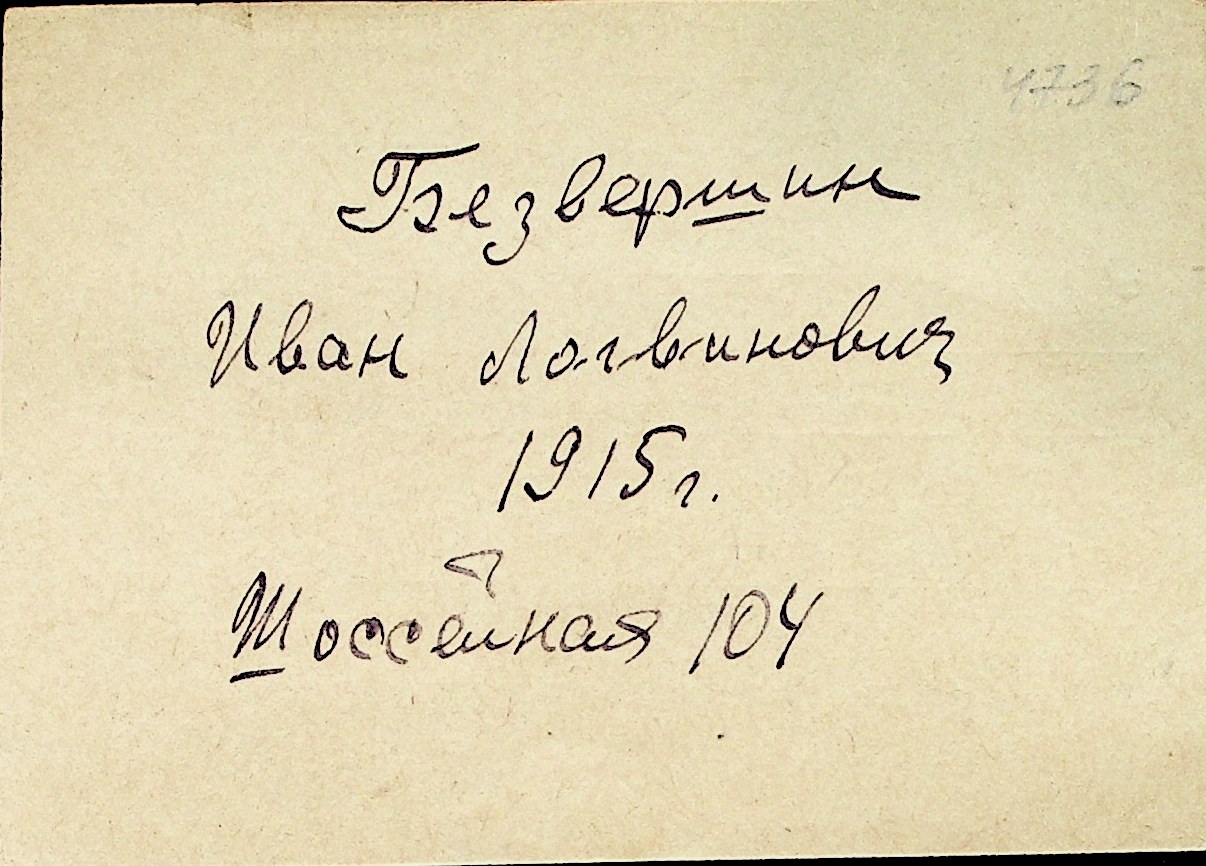 4736
Безвершин
Иван Логвинович
1915 г.
Шоссейная 104